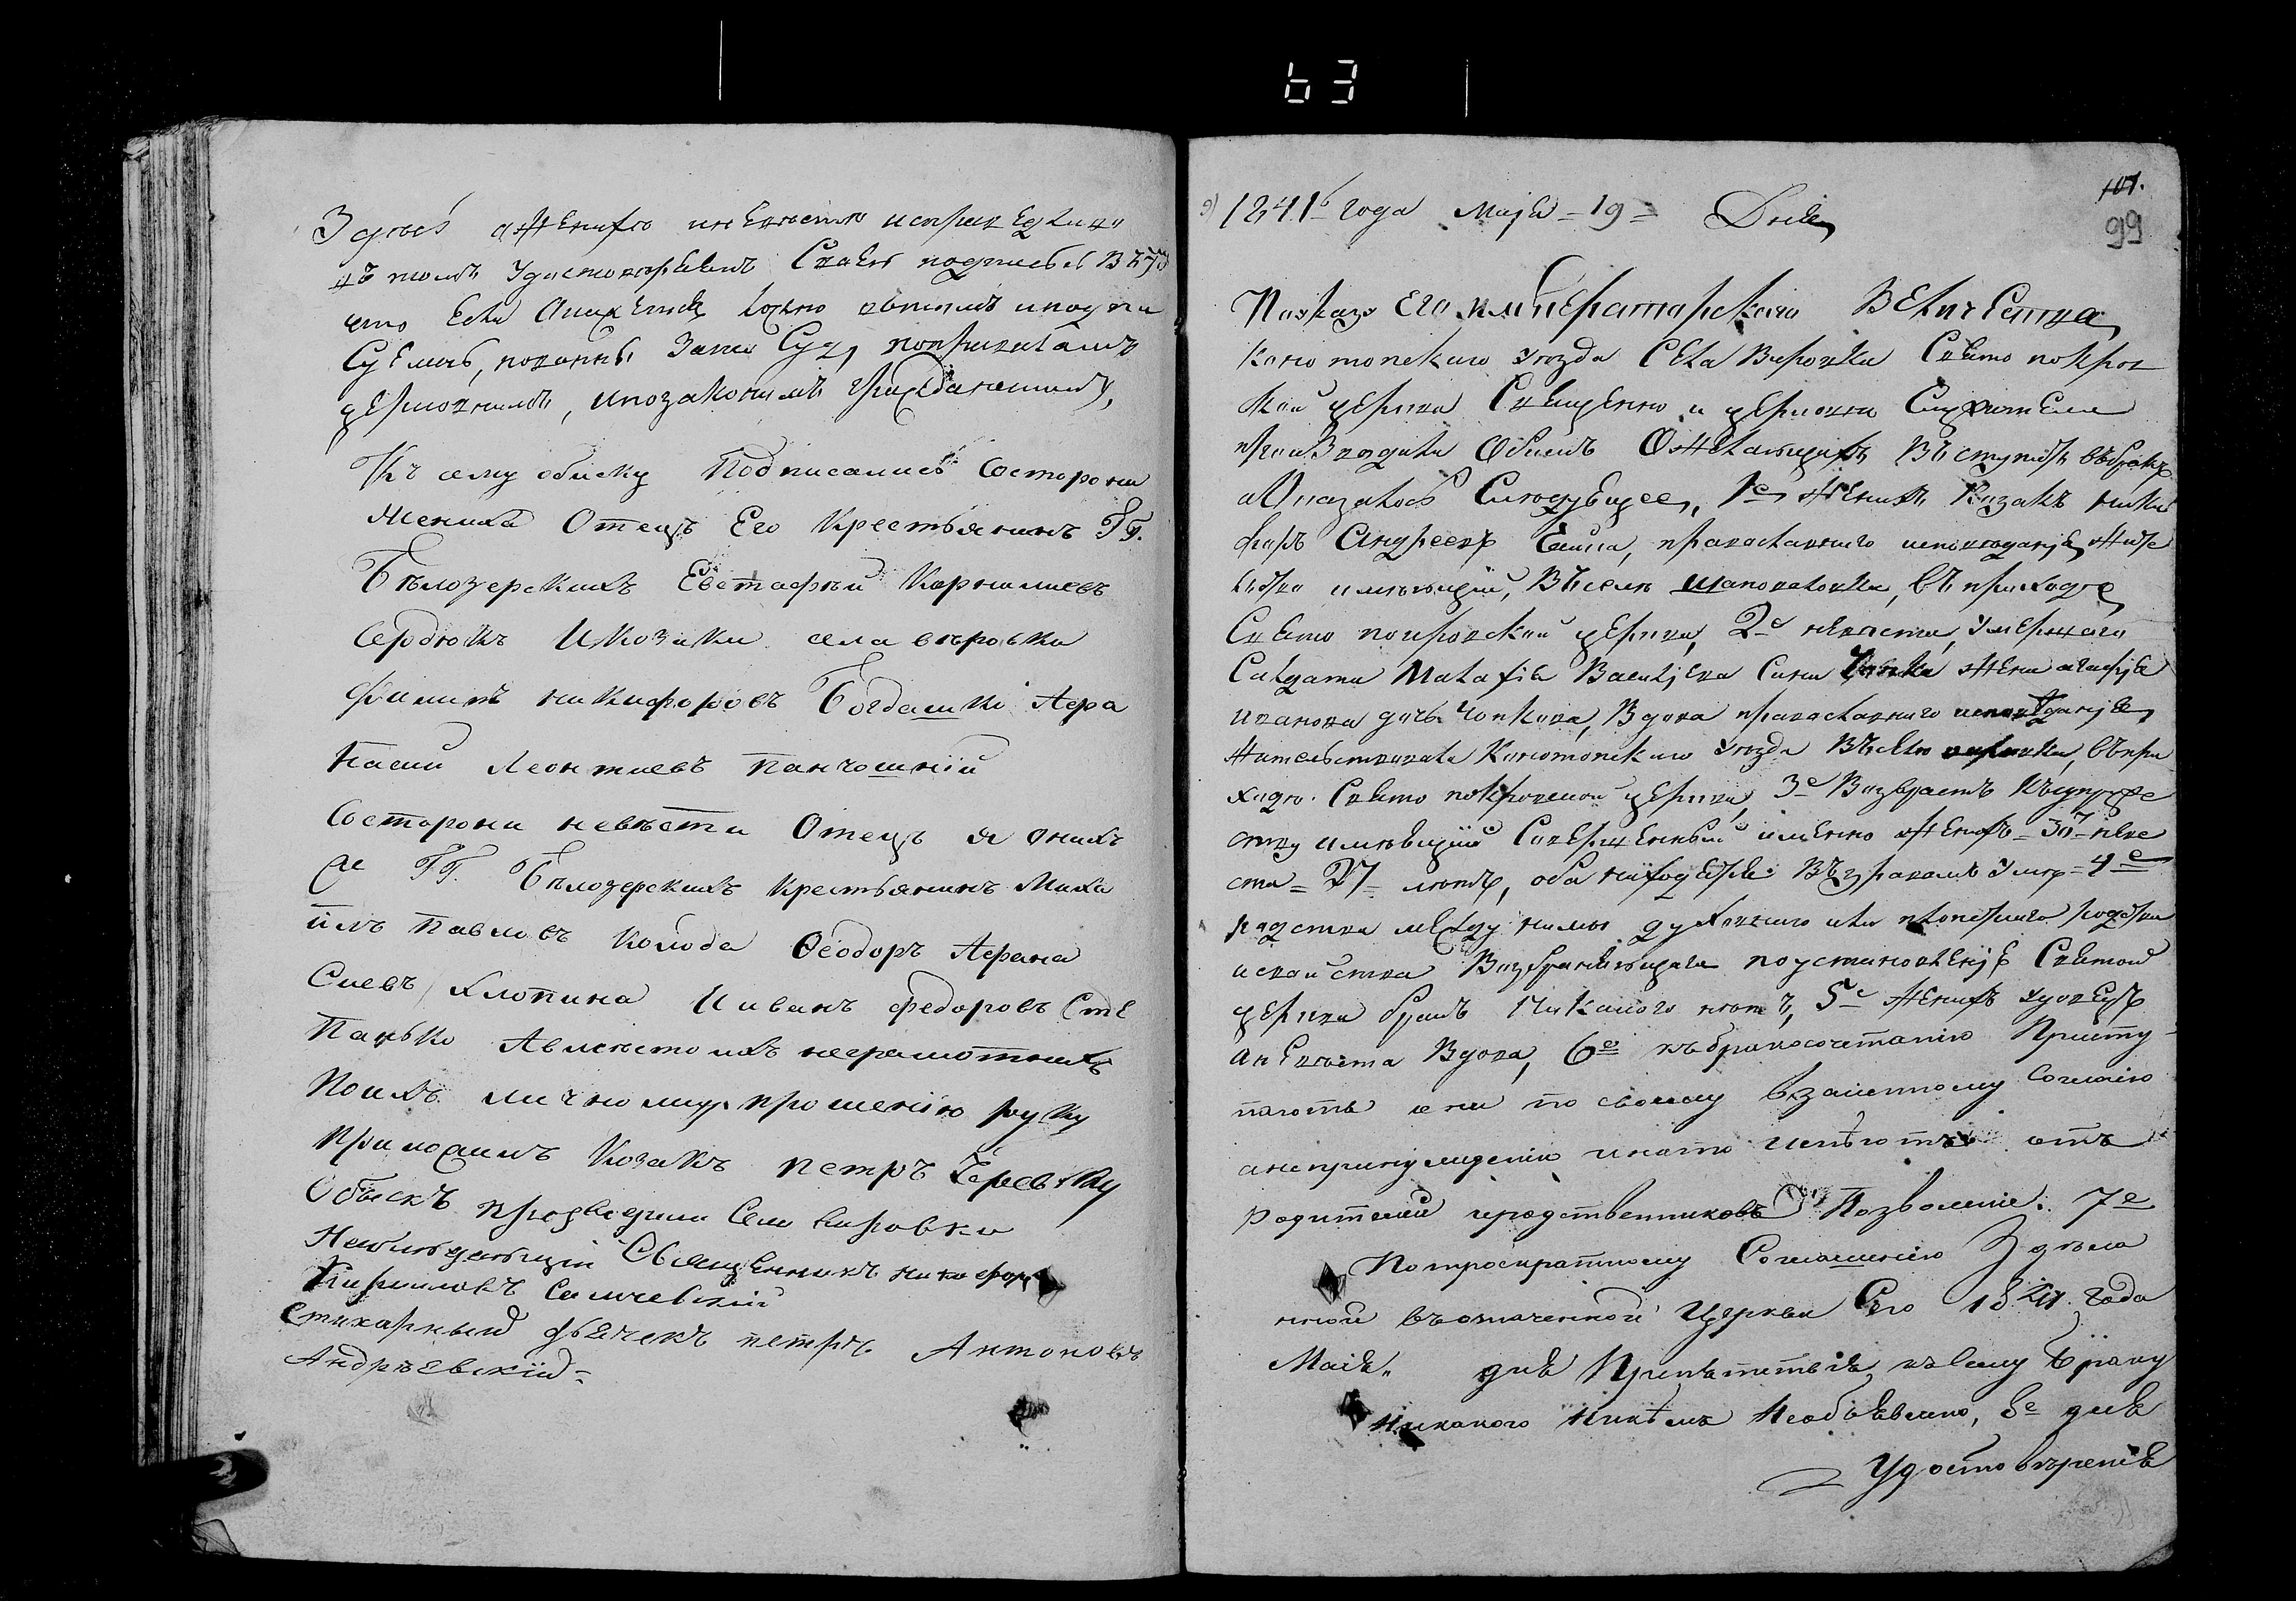 63
Здѣсь о женихѣ и невѣстѣ и справедливо
въ томъ удостовѣряемъ своею подписью въ
что если окажется
суемъ, повинны зато суду, по правиламъ
церковнымъ, и по законамъ гражданскимъ,
Къ сему обиску Подписались Состорони
жениха Отецъ Его Крестьянинъ ГГ.
Бѣлозерскихъ Евстафѣй Корнилиевъ
Сердюкъ И козаки села вировки
Филипъ никифоровъ Богдашко Афа
насий Леонтиевъ панчошний
Состорони невѣсти Отецъ я онихъ
же ГГ. Бѣлозерскихъ крестьянинъ Миха
илъ Павловъ Колода Феодоръ Афана
Сиевъ Хлопина И иванъ федоровъ Сте
панько А вместо ихъ неграмотнихъ
по ихъ личному прошенію руку
приложилъ Козакъ петръ Черевъку
Обыскъ производили Села вировки
Наблюдающій Священникъ никифоръ
Кириловъ Самчевскій
Стихарный дьячекъ петръ Антоновъ
Андрѣевскій
101.
99
9) 1841го года Маія = 19 = Дня
По указу Его императорскаго Величества,
Конотопскаго уезда Села Вировки Свято покров
кой церкви Священно и церковно Служители
производили Обыскъ О желающихъ вступить въ бракъ
и оказалось Следующее, 1е Женихъ Казакъ Ники
форъ Андреевъ Ехипа, православнаго исповеданія жите
льство имеющій, въ селе Шаповаловки, въ приходе
Свято покровской церкви, 2е невеста, умершаго
Салдата Малафія Василіева Сина Чопка жена агафія
иванова дочь Чопкова, вдова православнаго исповеданія,
жительствовала Конотопскаго уезда въ селе вировки, въ при
ходе Свято покровской церкви, 3е Возврастъ къ супруже
ству имеющій Совершенный именно женихъ = 30 = неве
ста = 27 = летъ, оба находятся въ здравомъ уме = 4е
родства между ними духовнаго или плотскаго родства
и свойства возбраняющаго по установленію Святой
церкви бракъ никакого нетъ, 5е женихъ вдовецъ
а невеста вдова, 6е къ бракосочетанію Присту
паютъ они по своему взаимному согласію
а не принужденію и на то имѣютъ отъ
родителей иродственниковъ Позволеніе. 7е
По троекратному Соглашенію Здѣла
нной въ означенной Церкви Сего 1841 года
Маія. дня Препятствія, къ сему браку
никакого никѣмъ Необъявлено, 8е для
Удостовѣренія